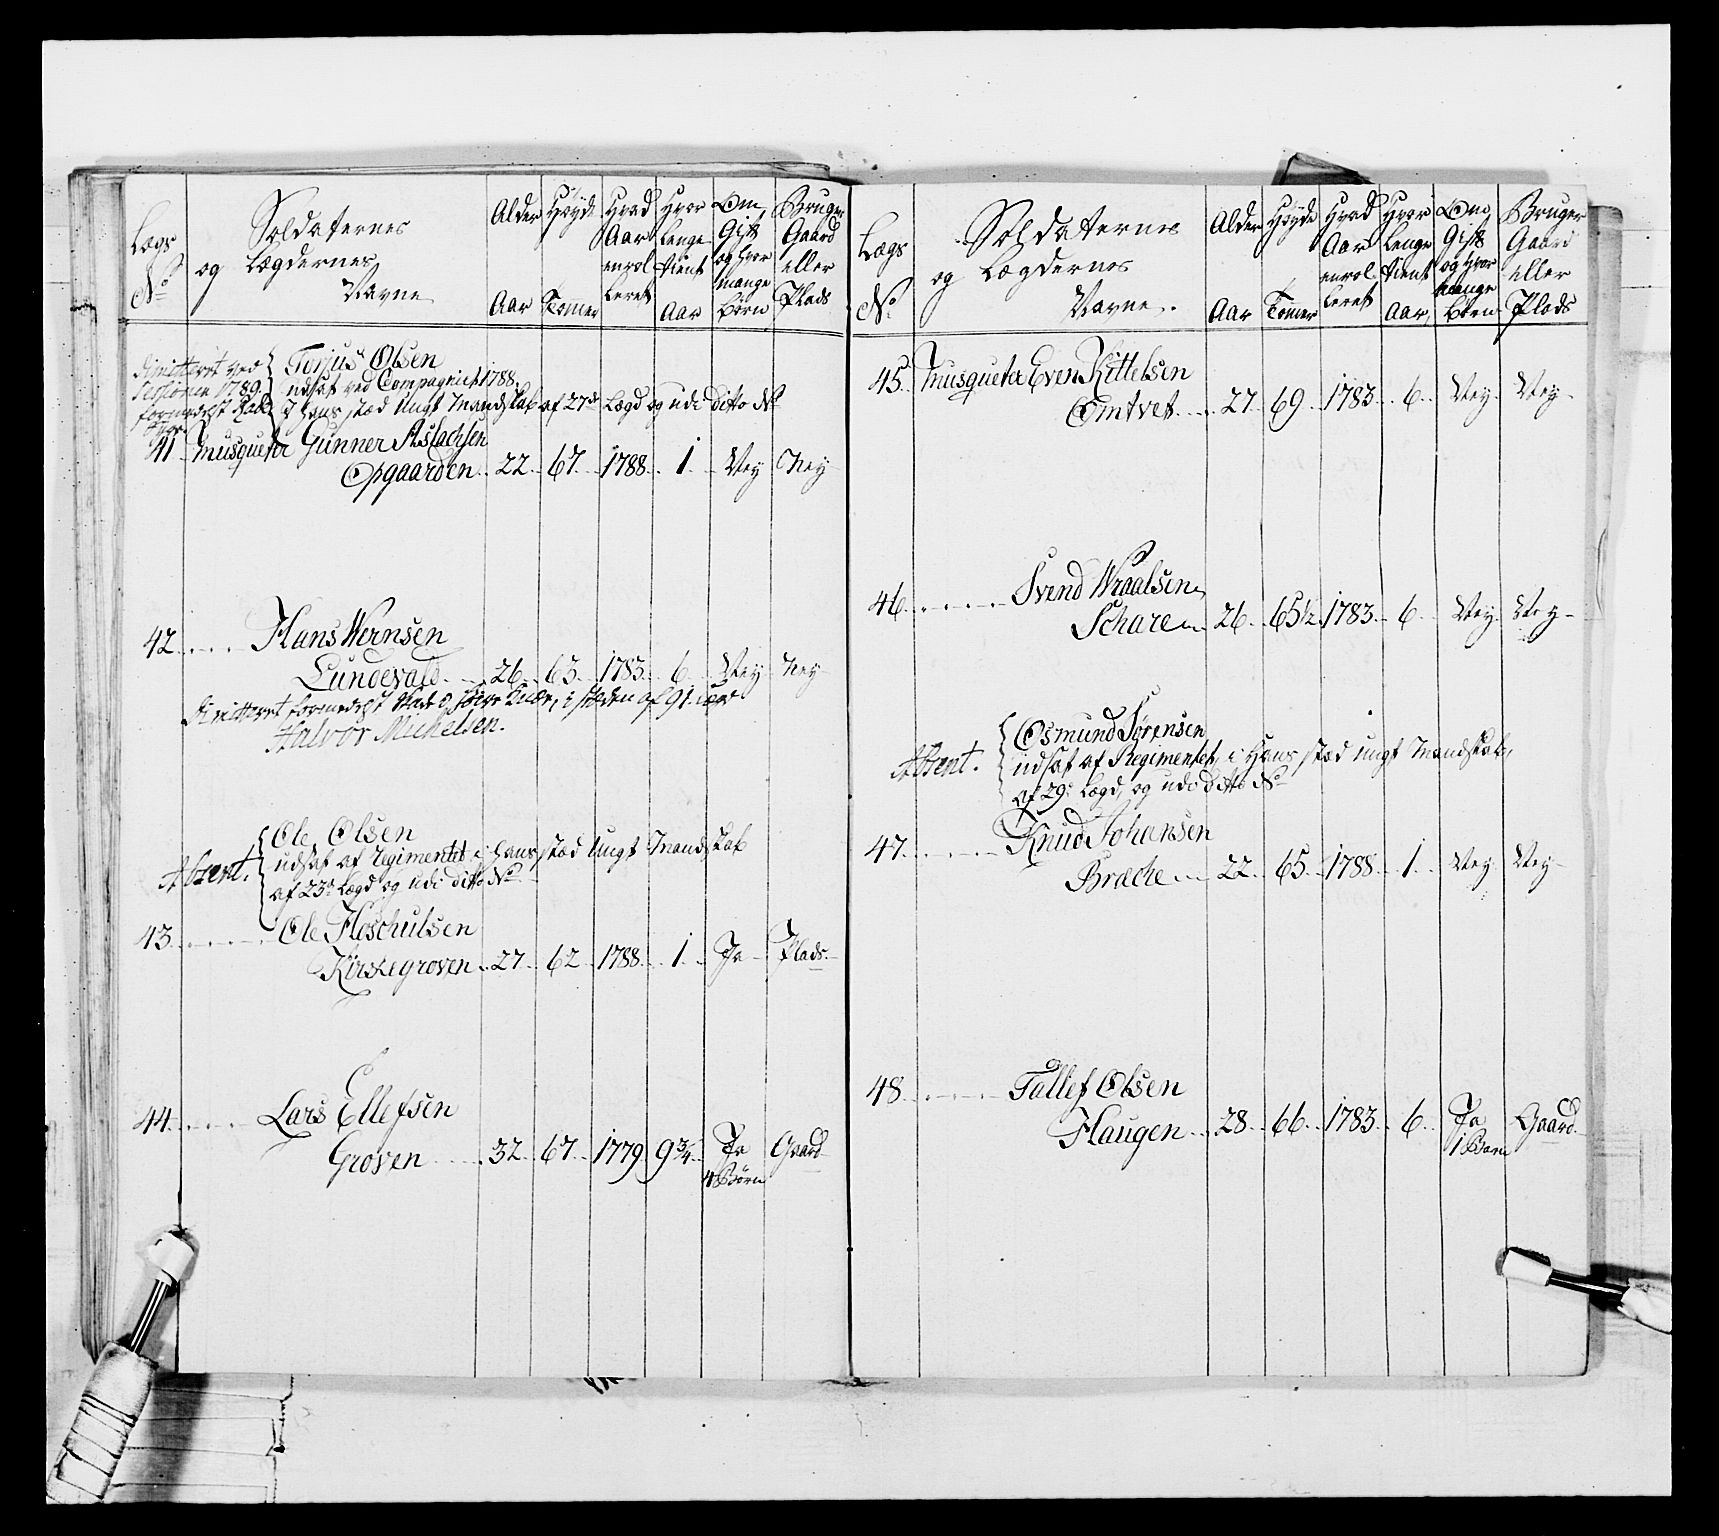 Lægs No
Soldaternes og Lægdernes Navne
Alder Aar
Høyde Tomer
Hvad Aar enrolleret
Hvor lenge tient Aar
Om Gift og hvor mange børn
Bruger Gaard eller Plads
Qvitteret ved Sessionen 1789 formedelst
Torjus Olsen
udsat ved Compagniet 1788.
i Hans stæd Ungt Mandskab af 27de Lægd og udi ditto No
41 Musqueter Gunner Aslachsen
Opgaarden 22 67 1788 1 Ney Ney
42 Hans Wernsen
Lundevald 26 63 1783 6 Ney Ney
Qvitteret formedelst i stæden af 91
Halvor Michelsen.
Absent.
Ole Olsen
udsat af Regimentet i Hans stæd Ungt Mandskab
af 23de Lægd og udi ditto No
43 Ole Floschulsen
Kirkegroven 27 62 1788 1 Ja Plads
44 Lars Ellefsen
Groven 32 67 1779 9 3/4 Ja Gaard
4 Børn
Lægs No
Soldaternes og Lægdernes Navne.
Alder Aar
Høyde Tomer
Hvad Aar enrolleret
Hvor Lenge tient Aar
Om Gift og hvor mange børn
Bruger Gaard eller Plads
45 Musqueter Even Kittelsen
Omtvet 27 69 1783 6 Ney Ney
46 Svend Wraalsen
Schare 26 65 1/2 1783 6 Ney Ney
Absent.
Osmund Sørensen
udsat af Regimentet, i Hans stæd Ungt Mandskab,
af 29de Lægd, og udi ditto No
47 Knud Johansen
Bræche 22 65 1788 1 Ney Ney
48 Tallef Olsen
Haugen 28 66 1783 6 Ja Gaard
1 Barn